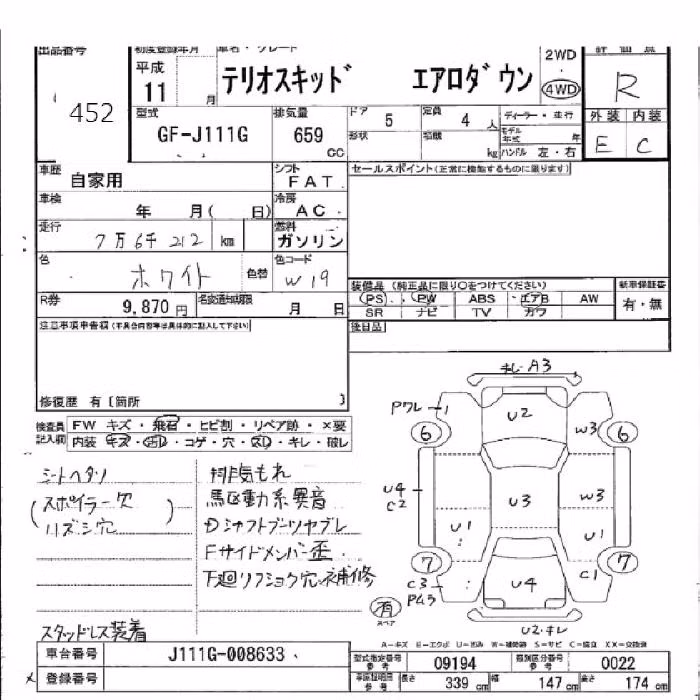 出品番号
452
初度登録年月
平成
11 月
車名・グレード
テリオスキッド エアロダウン
2WD
・
4WD
評価点
R
型式
GF-J111G
排気量
659
CC
ドア
5
定員
4 人
形状
積載
kg
ディーラー・並行
モデル年式 年
ハンドル 左・右
外装 内装
E C
車歴
自家用
シフト
FAT
セールスポイント(正常に機能するものに限ります)
車検
年 月( 日)
冷房
AC
走行
7万6千212 km
燃料
ガソリン
色
ホワイト
色替
色コード
W19
装備品(純正品に限り○をつけてください)
PS PW ABS エアB AW
SR ナビ TV カワ
新車保証書
有・無
R券
9,870 円
名変通知期限
月 日
後日品
注意事項申告欄(不具合内容等は具体的に記入して下さい)
修復歴 有〔箇所 〕
検査員記入欄
FW キズ・飛石・ヒビ割・リペア跡・×要
内装 キズ・汚レ・コゲ・穴・スレ・キレ・破レ
シートヘタリ
(スポイラー欠
リズシ穴)
スタッドレス装着
排気もれ
駆動系異音
Dシャフトブーツヤブレ
Fサイドメンバー歪
下廻リフショク穴・補修
キレ・A3
Pワレ 1
U2
W3
6 6
U4
C2
U3
W3
U1
U1
7 7
C3
Pムラ
U4
C1
有
スペア
U2・キレ
A-キズ E-エクボ U-凹み W-補修跡 S-サビ C-腐立 XX-交換済
車台番号
J111G-008633
登録番号
型式指定番号 参考
09194
類別区分番号 参考
0022
車両証明記載 参考
長さ 339 cm
幅 147 cm
高さ 174 cm